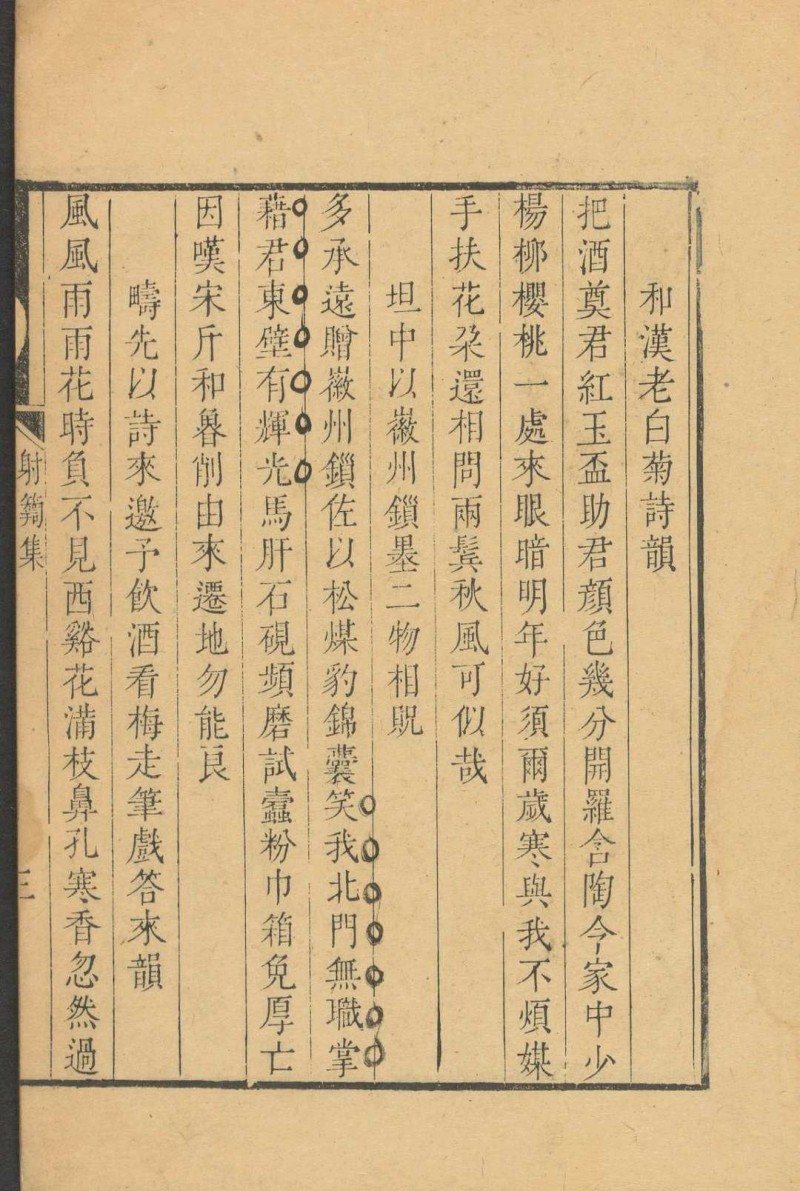 和漢老白菊詩韻
把酒奠君紅玉盃助君顔色幾分開羅含陶令家中少
楊柳櫻桃一處來眼暗明年好須爾歲寒與我不煩媒
手扶花朶還相問兩鬂秋風可似哉
坦中以徽州鎻墨二物相貺
多承遠贈徽州鎻佐以松煤豹錦囊笑我北門無職掌
藉君東壁有輝光馬肝石硯頻磨試蠧粉巾箱免厚亡
因嘆宋斤和魯削由來遷地勿能良
疇先以詩來邀予飲酒看梅走筆戲答來韻
風風雨雨花時負不見西谿花滿枝鼻孔寒香忽然過
射蒭集
三